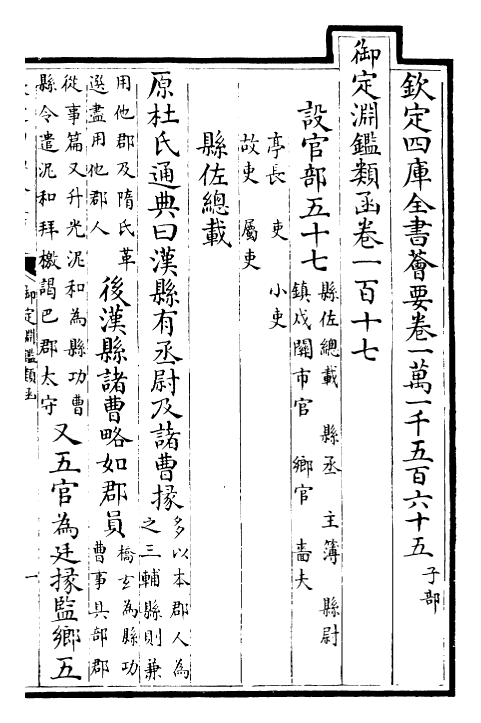 欽定四庫全書薈要卷一萬一千五百六十五 子部
御定淵鑑類函卷一百十七
設官部五十七 縣佐總載 縣丞 主簿 縣尉
鎮戍關市官 鄉官 嗇夫
亭長 吏 小吏
故吏 屬吏
縣佐總載
原杜氏通典曰漢縣有丞尉及諸曹掾 多以本郡人為
之三輔縣則兼
用他郡及隋氏革
選盡用他郡人 後漢縣諸曹略如郡員 橋玄為縣功
曹事具部郡
從事篇又升光泥和為縣功曹
縣令遣泥和拜檄謁巴郡太守 又五官為廷掾監鄉五
御定淵鑑類函
一